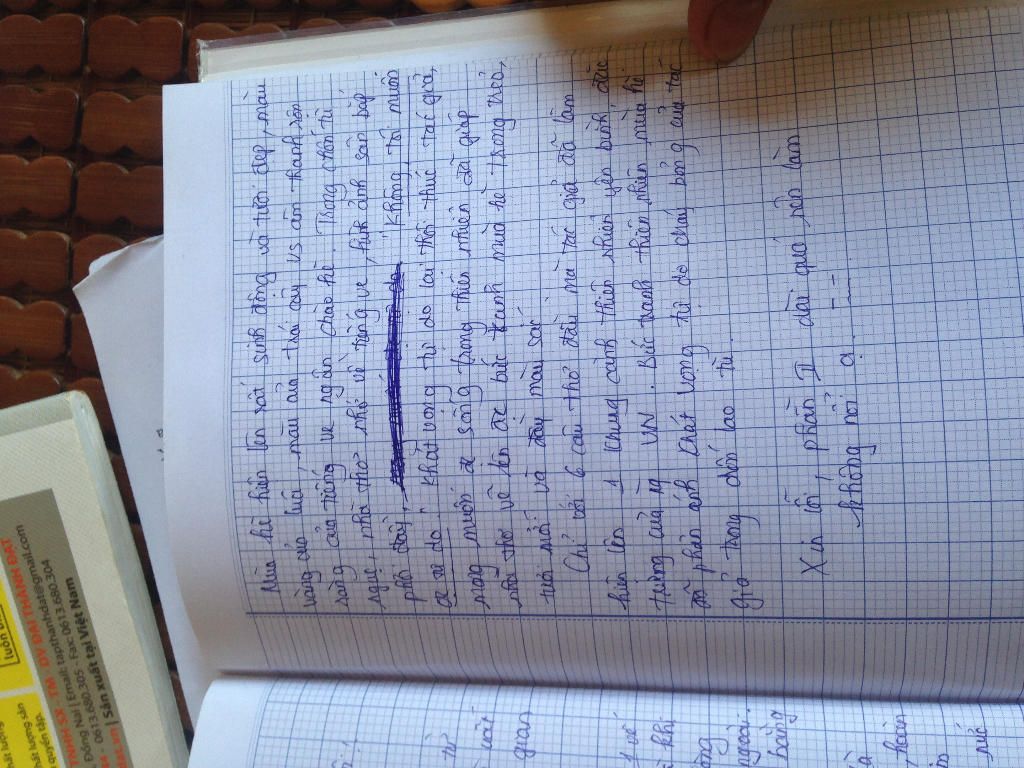 Mùa hè hiện lên rất sinh động và tươi đẹp, màu
vàng của lúa, màu của trái cây vs âm thanh rộn
ràng của tiếng ve ngân chào hè. Trong chốn tù
ngục, nhà thơ nhớ về tiếng ve, hình ảnh sân bắp
phơi đầy, "Không, tôi muốn
đc tự do" khát vọng tự do lại thôi thúc tác giả,
mong muốn đc sống trong thiên nhiên đã giúp
nhà thơ vẽ lên đc bức tranh mùa hè trong trẻo,
tươi mới và đầy màu sắc
Chỉ với 6 câu thơ đầu mà tác giả đã làm
hiện lên 1 khung cảnh thiên nhiên yên bình đặc
trưng của làng VN. Bức tranh thiên nhiên mùa hè
đã phản ánh khát vọng tự do cháy bỏng của tác
giả trong chốn lao tù.
Xin lỗi, phần II dài quá nên làm
không nổi ạ
luôn
TNHH SX TM DV ĐẠI THÀNH ĐẠT
Đồng Nai | Email: tapthanhdat@gmail.com
- 0613.680.305 - Fax: 0613.680.304
| Sản xuất tại Việt Nam
chất lượng
quyền tập.
chất lượng sản
từ
gian
1 vẻ
khi
ngoài.
bằng